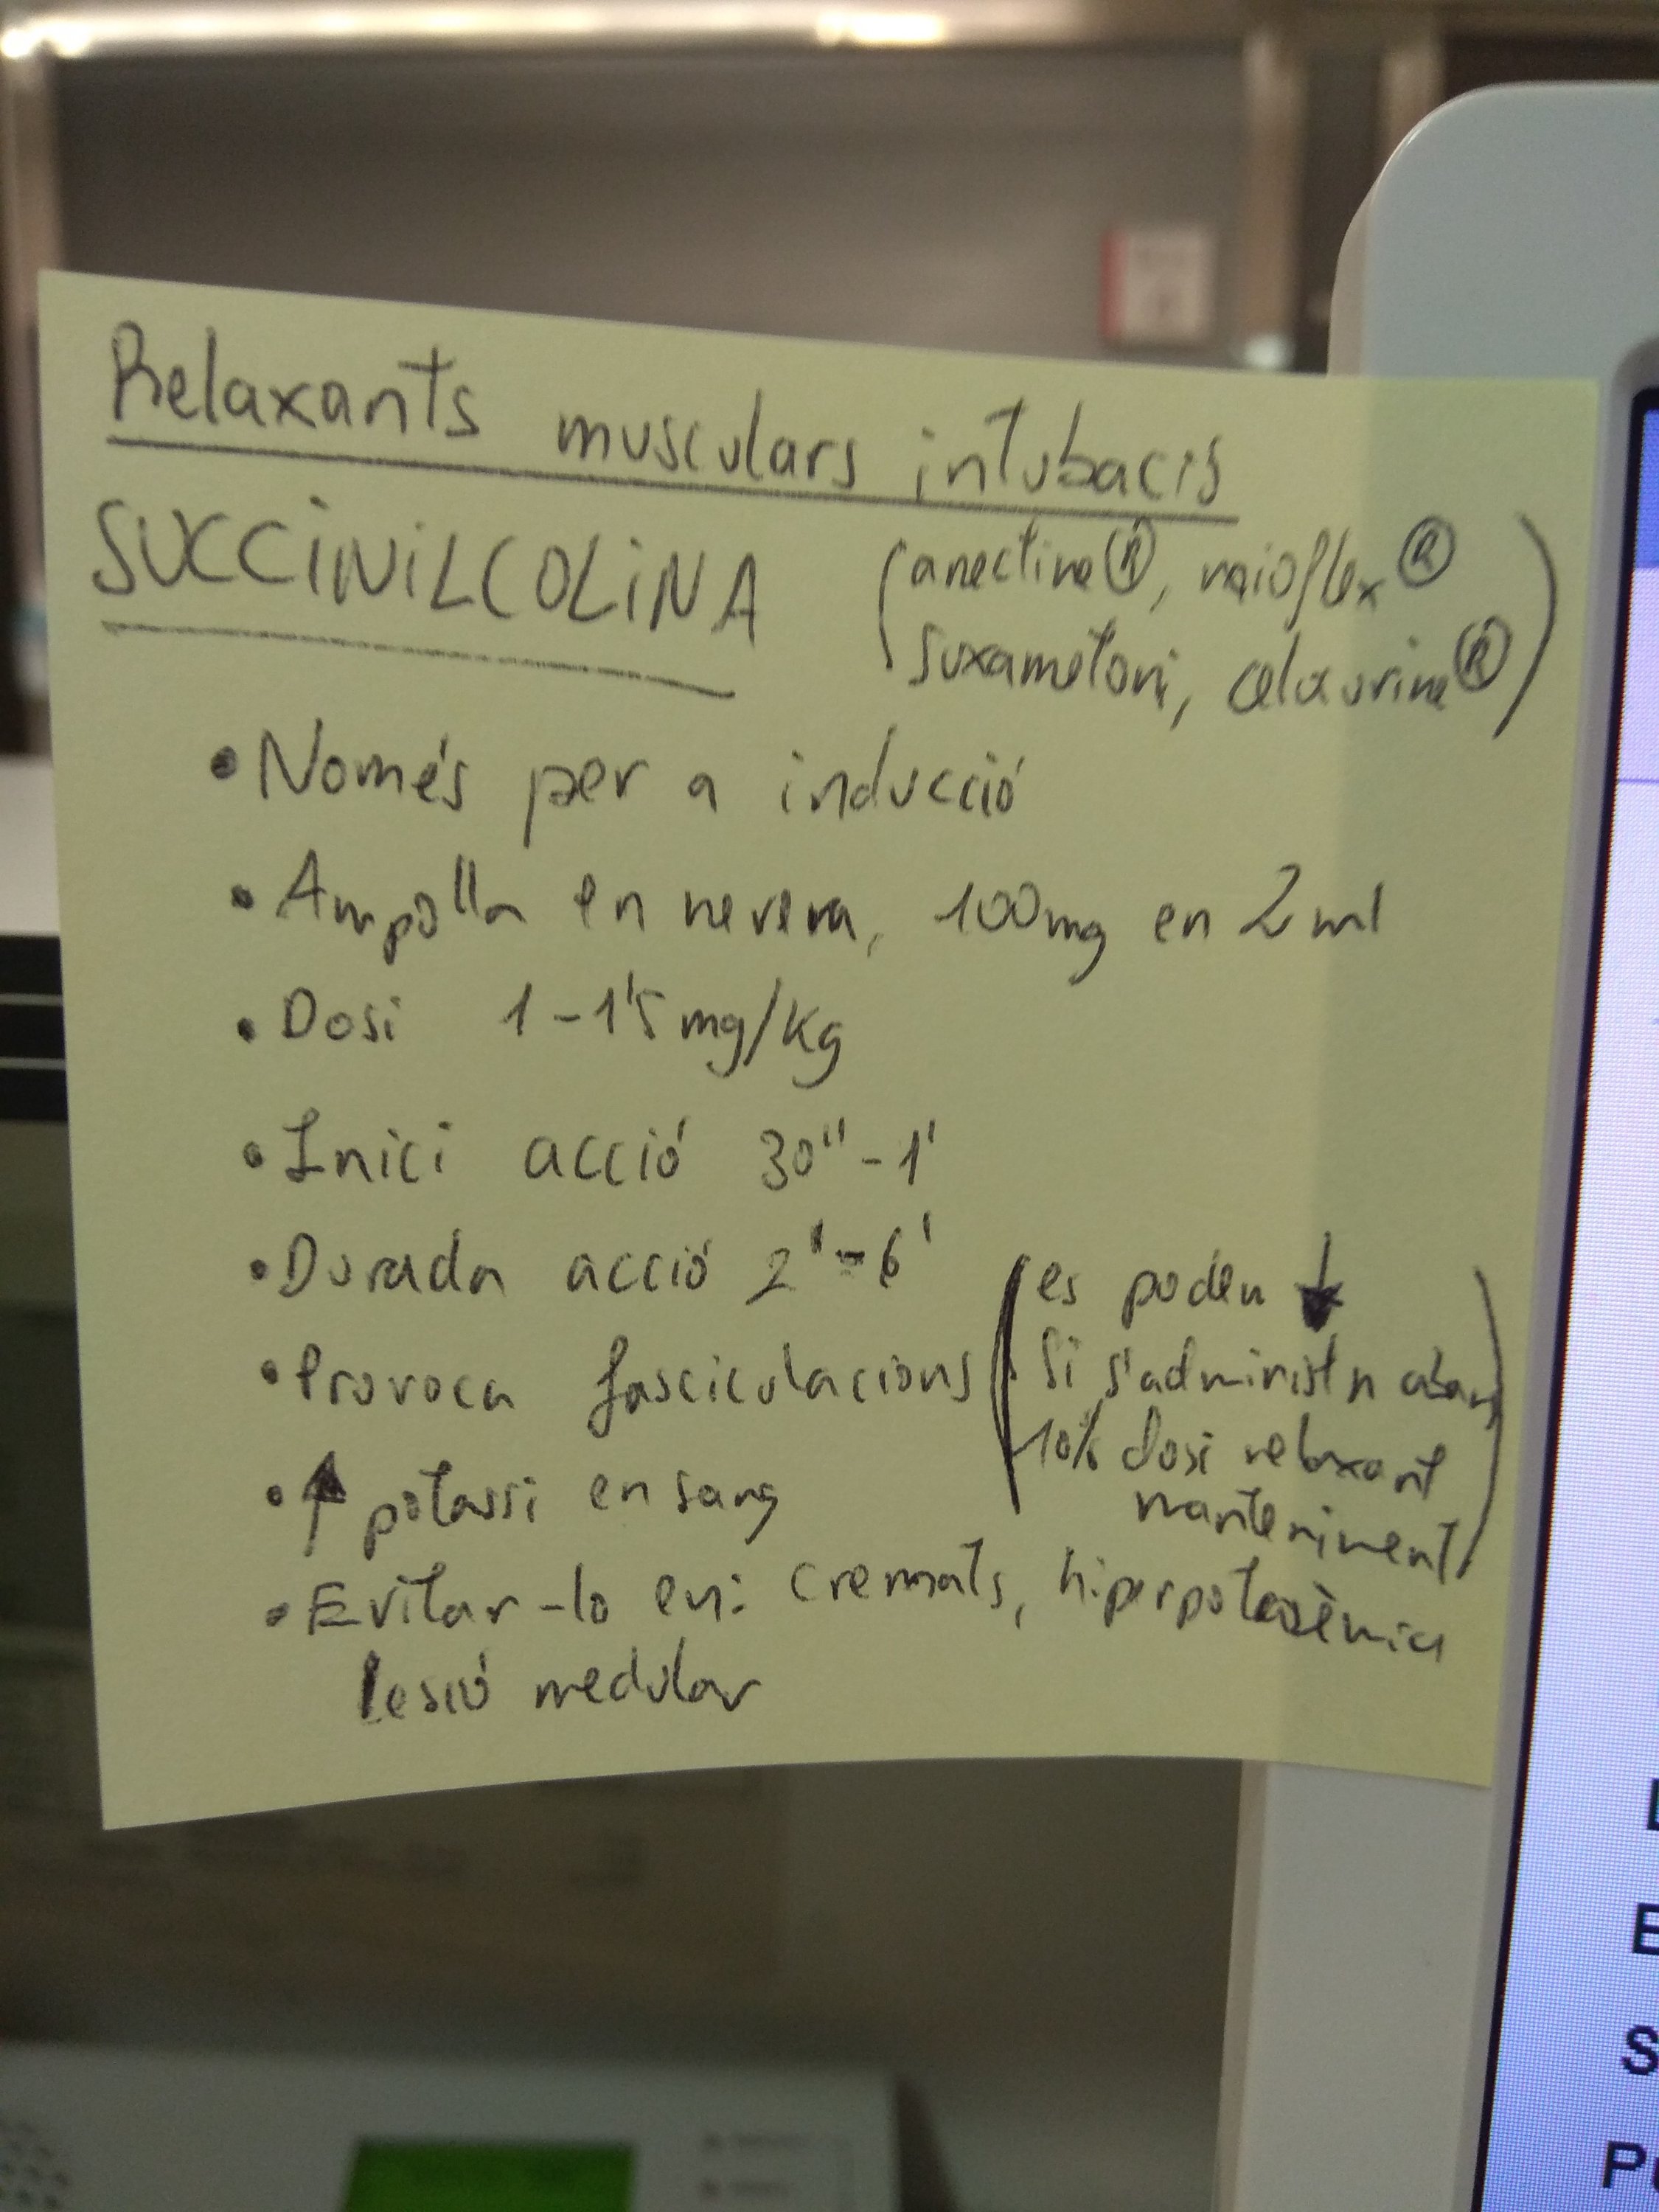 Relaxants musculars intubació
SUCCINILCOLINA (anectine®, mioflex®
suxametoni, celocurine®)
• Només per a inducció
• Ampolla en nevera, 100mg en 2ml
• Dosi 1-1'5mg/Kg
• Inici acció 30"-1'
• Durada acció 2'-6'
• Provoca fasciculacions (es poden ↓
si s'administra abans
10% dosi relaxant
manteniment)
• ↑ potassi en sang
• Evitar-lo en: cremats, hiperpotasèmia
lesió medular